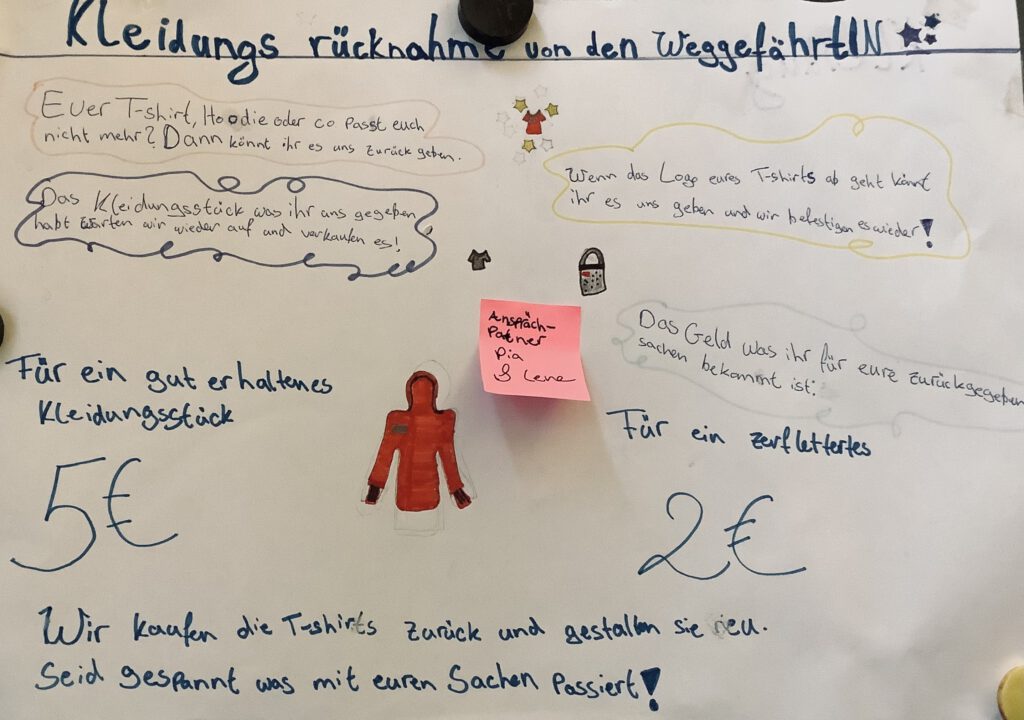 Kleidungs rücknahme von den WeggefährtIN
Euer T-shirt, Hoodie oder co Passt euch
nicht mehr? Dann könnt ihr es uns zurück geben.
Das Kleidungsstück was ihr uns gegeben
habt warten wir wieder auf und verkaufen es!
Wenn das Logo eures T-shirts ab geht könnt
ihr es uns geben und wir befestigen es wieder!
Anspräch-
Partner
Pia
& Lena
Das Geld was ihr für eure zurückgegeben
sachen bekommt ist:
Für ein gut erhaltenes
Kleidungsstück
5€
Für ein zerflettertes
2€
Wir kaufen die T-shirts zurück und gestalten sie neu.
Seid gespannt was mit euren Sachen Passiert!